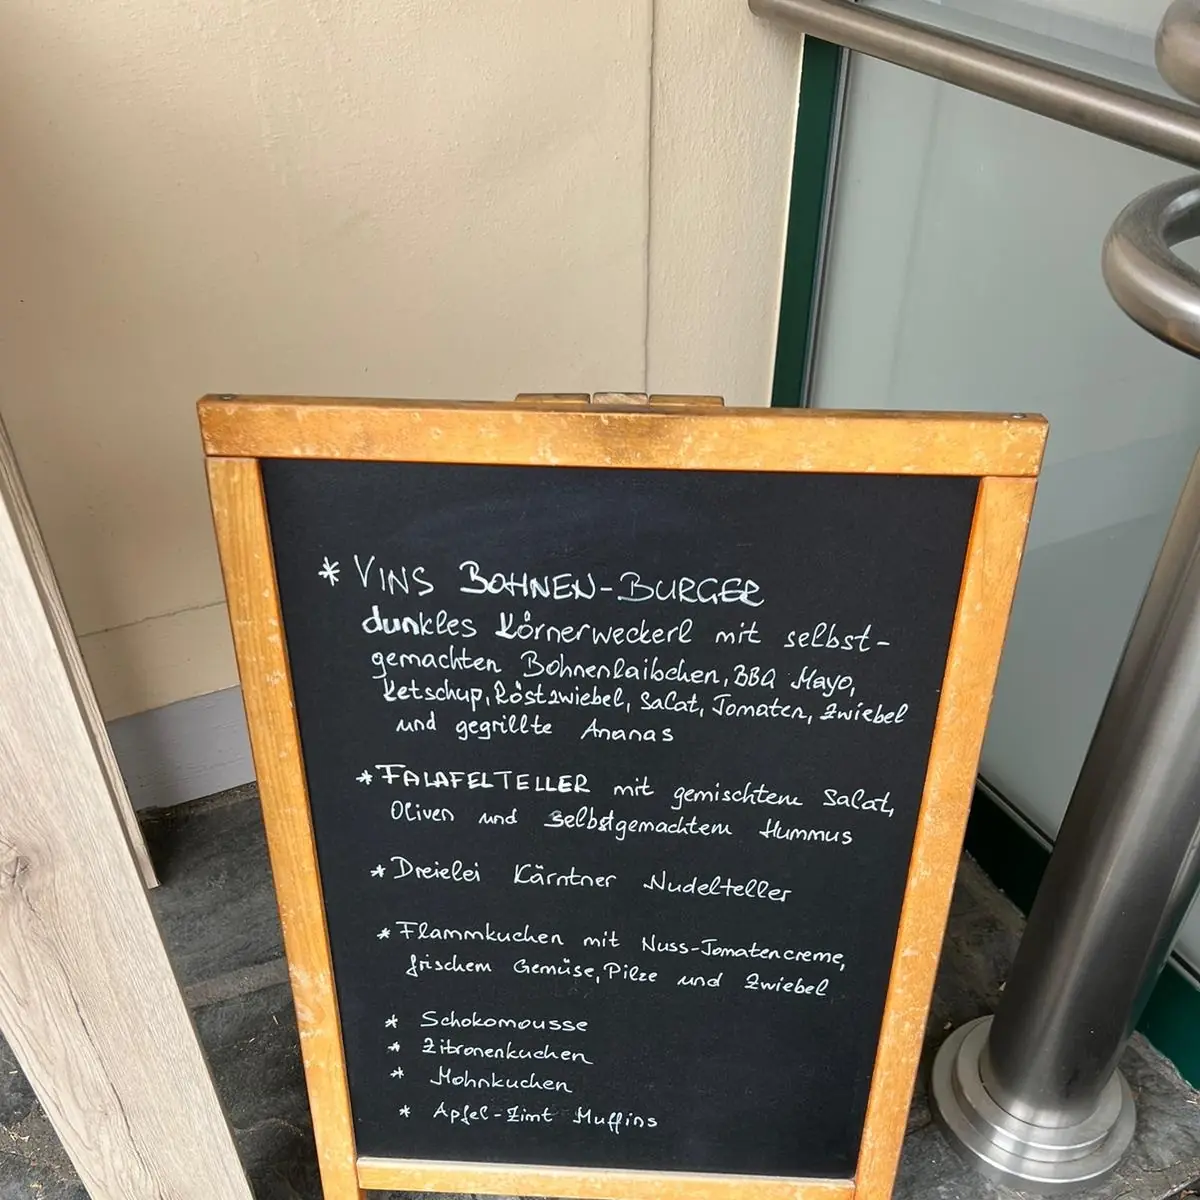 * VINS BOHNEN-BURGER
dunkles Körnerweckerl mit selbst-
gemachten Bohnenlaibchen, BBQ Mayo,
Ketschup, Röstzwiebel, Salat, Tomaten, Zwiebel
und gegrillte Ananas
* FALAFELTELLER mit gemischtem Salat,
Oliven und selbstgemachtem Hummus
* Dreielei Kärntner Nudelteller
* Flammkuchen mit Nuss-Tomatencreme,
frischem Gemüse, Pilze und Zwiebel
* Schokomousse
* Zitronenkuchen
* Mohnkuchen
* Apfel-Zimt Muffins